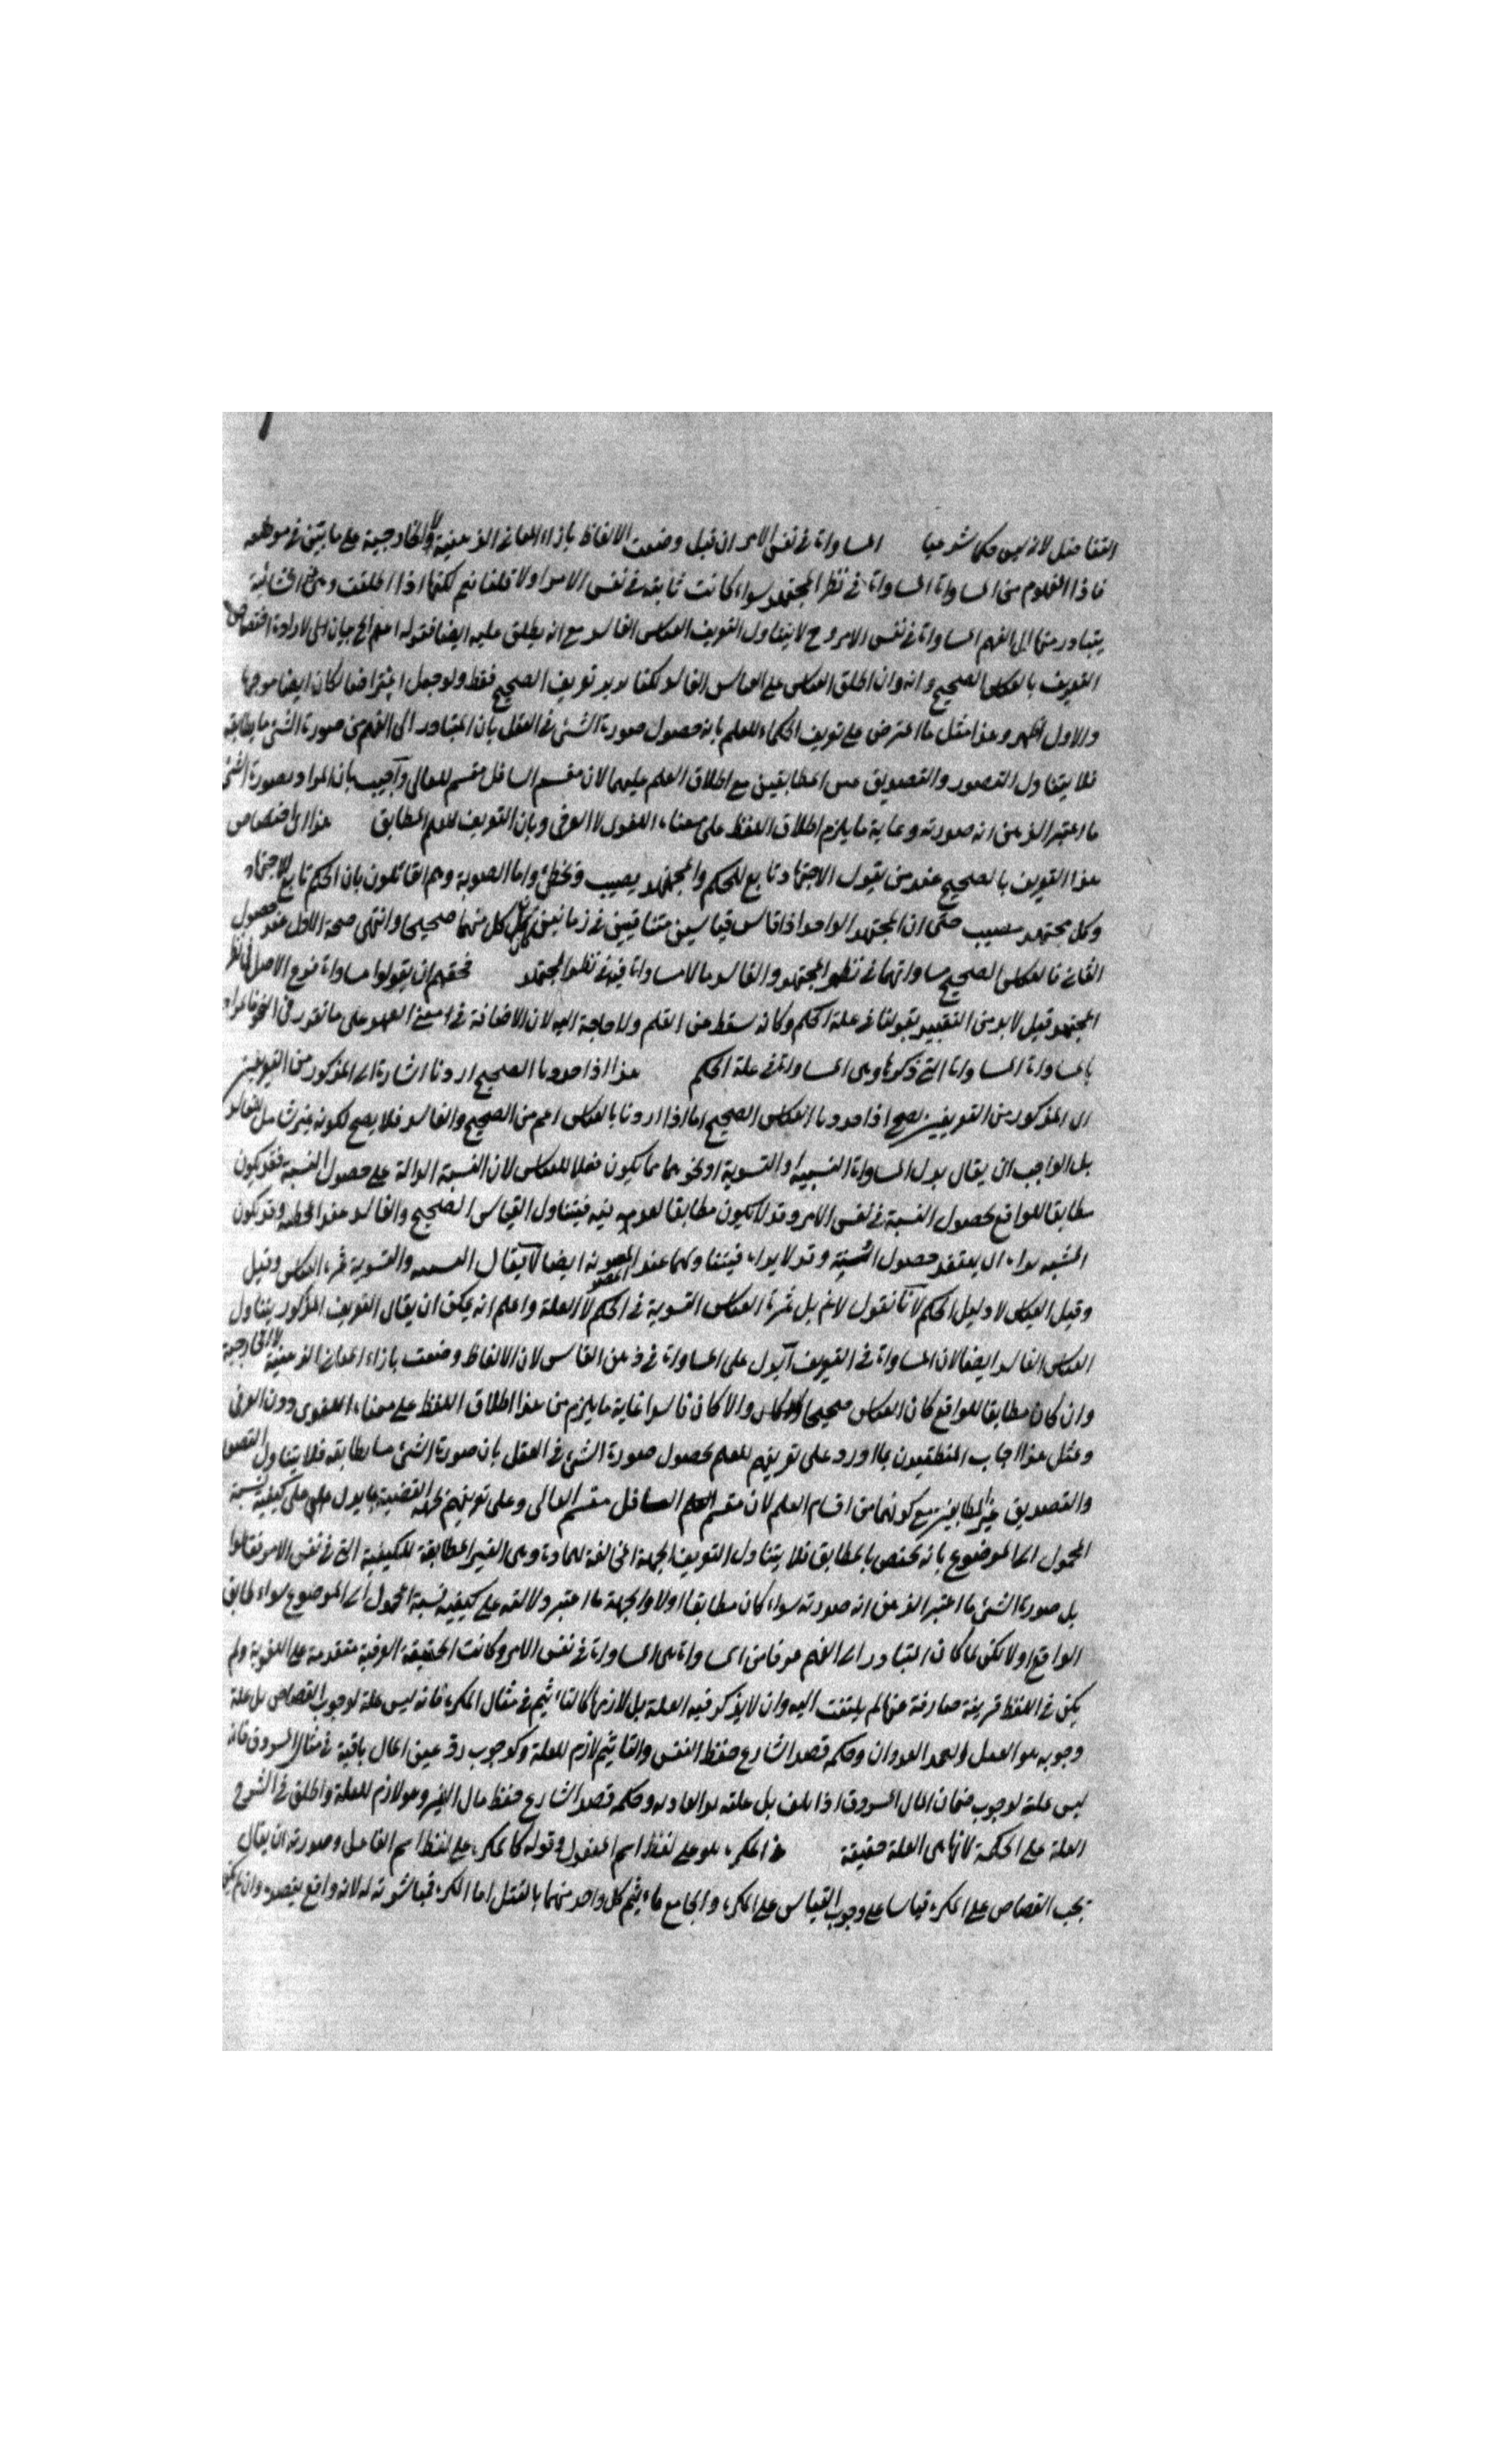 التفاضل لانه ليس حكما شرعيا المساواة في نفس الامر ان قيل وضعت الالفاظ بازاء المعاني الذهنية لا الخارجية على ما بين في موضعه
فاذا المفهوم من المساواة المساواة في نظر المجتهد سواء كانت ثابتة في نفس الامر او لا قلنا نعم لكنها اذا اطلقت
يتبادر منها الى الفهم المساواة في نفس الامر وح لا يتناول التعريف القياس الفاسد مع انه يطلق عليه ايضا فقوله اعلم الخ بيان اى لارادة اختصاص
التعريف بالقياس الصحيح وانه وان اطلق القياس على القياس الفاسد لكنا نريد تعريف الصحيح فقط ولو جعل اعتراضا لكان ايضا موجها
والاول اظهر وهذا مثل ما اعترض على تعريف الحكماء للعلم بانه حصول صورة الشئ في العقل بان المتبادر الى الفهم من صورة الشئ ما يطابقه
فلا يتناول التصور والتصديق غير المطابقين مع اطلاق العلم عليهما لان مقسم السافل مقسم للعالى واجيب بان المراد بصورة الشئ
ما اعتبر الذهن انه صورته وغاية ما يلزم اطلاق اللفظ على معناه اللغوى لا العرفى وبان التعريف للعلم المطابق هذا اى اختصاص
هذا التعريف بالصحيح عند من يقول الاجتهاد تابع للحكم والمجتهد يصيب ويخطئ واما المصوبة وهم القائلون بان الحكم تابع للاجتهاد
وكل مجتهد مصيب حتى ان المجتهد الواحد اذا قاس قياسين متنافيين في زمانين كان كل منهما صحيحا وانتهى صحة الاول عند حصول
الثانى فالقياس الصحيح مساواتهما في نظر المجتهد والفاسد ما لا مساواة فيه في نظر المجتهد فحقهم ان يقولوا مساواة فرع لاصل في نظر
المجتهد قيل لا بد من التقييد بقولنا في علة الحكم وكانه سقط من القلم ولا حاجة اليه لان الاضافة في معنى العهد على ما تقرر في النحو فالمراد
بالمساواة المساواة التى ذكرها وهى المساواة في علة الحكم هذا اذا حددنا الصحيح اردنا اشارة الى المذكور من التعريفين
اى المذكور من التعريفين يصح اذا حددنا القياس الصحيح اما اذا اردنا بالقياس اعم من الصحيح والفاسد فلا يصح لكونه غير شامل للفاسد
بل الواجب ان يقال بدل المساواة التشبيه او التسوية او نحوهما مما يكون فعلا للقايس لان التشبيه الدالة على حصول الشبه فقد يكون
مطابقا للواقع لحصول الشبه في نفس الامر وقد لا يكون مطابقا لعدمه فيه فيتناول القياس الصحيح والفاسد عند المخطئة وقد يكون
المشبه يراه اى يعتقد حصول الشبه وقد لا يراه فيتناولهما عند المصوبة ايضا لا يقال التشبيه والتسوية ثمرة القياس وقيل
وقيل القياس لا دليل الحكم لانا نقول لا نم بل ثمرة القياس التسوية في الحكم لا العلة واعلم انه يمكن ان يقال التعريف المذكور يتناول
القياس الفاسد ايضا لان المساواة في التعريف يدل على المساواة في ذهن القايس لان الالفاظ وضعت بازاء المعانى الذهنية لا الخارجية
وان كان مطابقا للواقع كان القياس صحيحا والا كان فاسدا غاية ما يلزم من هذا اطلاق اللفظ على معناه اللغوى دون العرفى
وبمثل هذا اجاب المنطقيون بما اورد على تعريفهم للعلم بحصول صورة الشئ في العقل بان صورة الشئ ما يطابقه فلا يتناول التصور
والتصديق غير المطابقين مع كونهما من اقسام العلم لان مقسم السافل مقسم العالى وعلى تعريفهم لجهة القضية بما يدل على كيفية نسبة
المحمول الى الموضوع بانه يختص بالمطابق فلا يتناول التعريف الجهة المخالفة للمادة وهى الغير المطابقة للكيفية التى في نفس الامر فقالوا
بل صورة الشئ ما اعتبر الذهن انه صورته سواء كان مطابقا او لا والجهة ما اعتبر دلالته على كيفية نسبة المحمول الى الموضوع سواء طابق
الواقع او لا لكن لما كان المتبادر الى الفهم عرفا من المساواة هى المساواة في نفس الامر وكانت الحقيقة العرفية متقدمة على اللغوية ولم
يكن في اللفظ قرينة صارفة عنها لم يلتفت اليه وان لا يذكر فيه العلة بل لازمها كالتاثيم في مثال المكره فانه ليس علة لوجوب القصاص بل علة
وجوبه هو القتل العمد العدوان وحكمه قصد الشارع حفظ النفس والتاثيم لازم للعلة وكوجوب رد عين المال باقية في مثال المسروق فانه
ليس علة لوجوب ضمان المال المسروق اذا تلف بل علته اليد العادية وحكمه قصد الشارع حفظ مال الغير وهو لازم للعلة واطلق في الشرح
العلة على الحكمة لانها هى العلة حقيقة المكره هو على لفظ اسم المفعول وقوله كالمكره على لفظ اسم الفاعل وصورته ان يقال
يجب القصاص على المكره قياسا على وجوب القياس على المكره والجامع تاثيم كل واحد منهما بالقتل اما المكره فمباشرته له لانه واقع بقصده